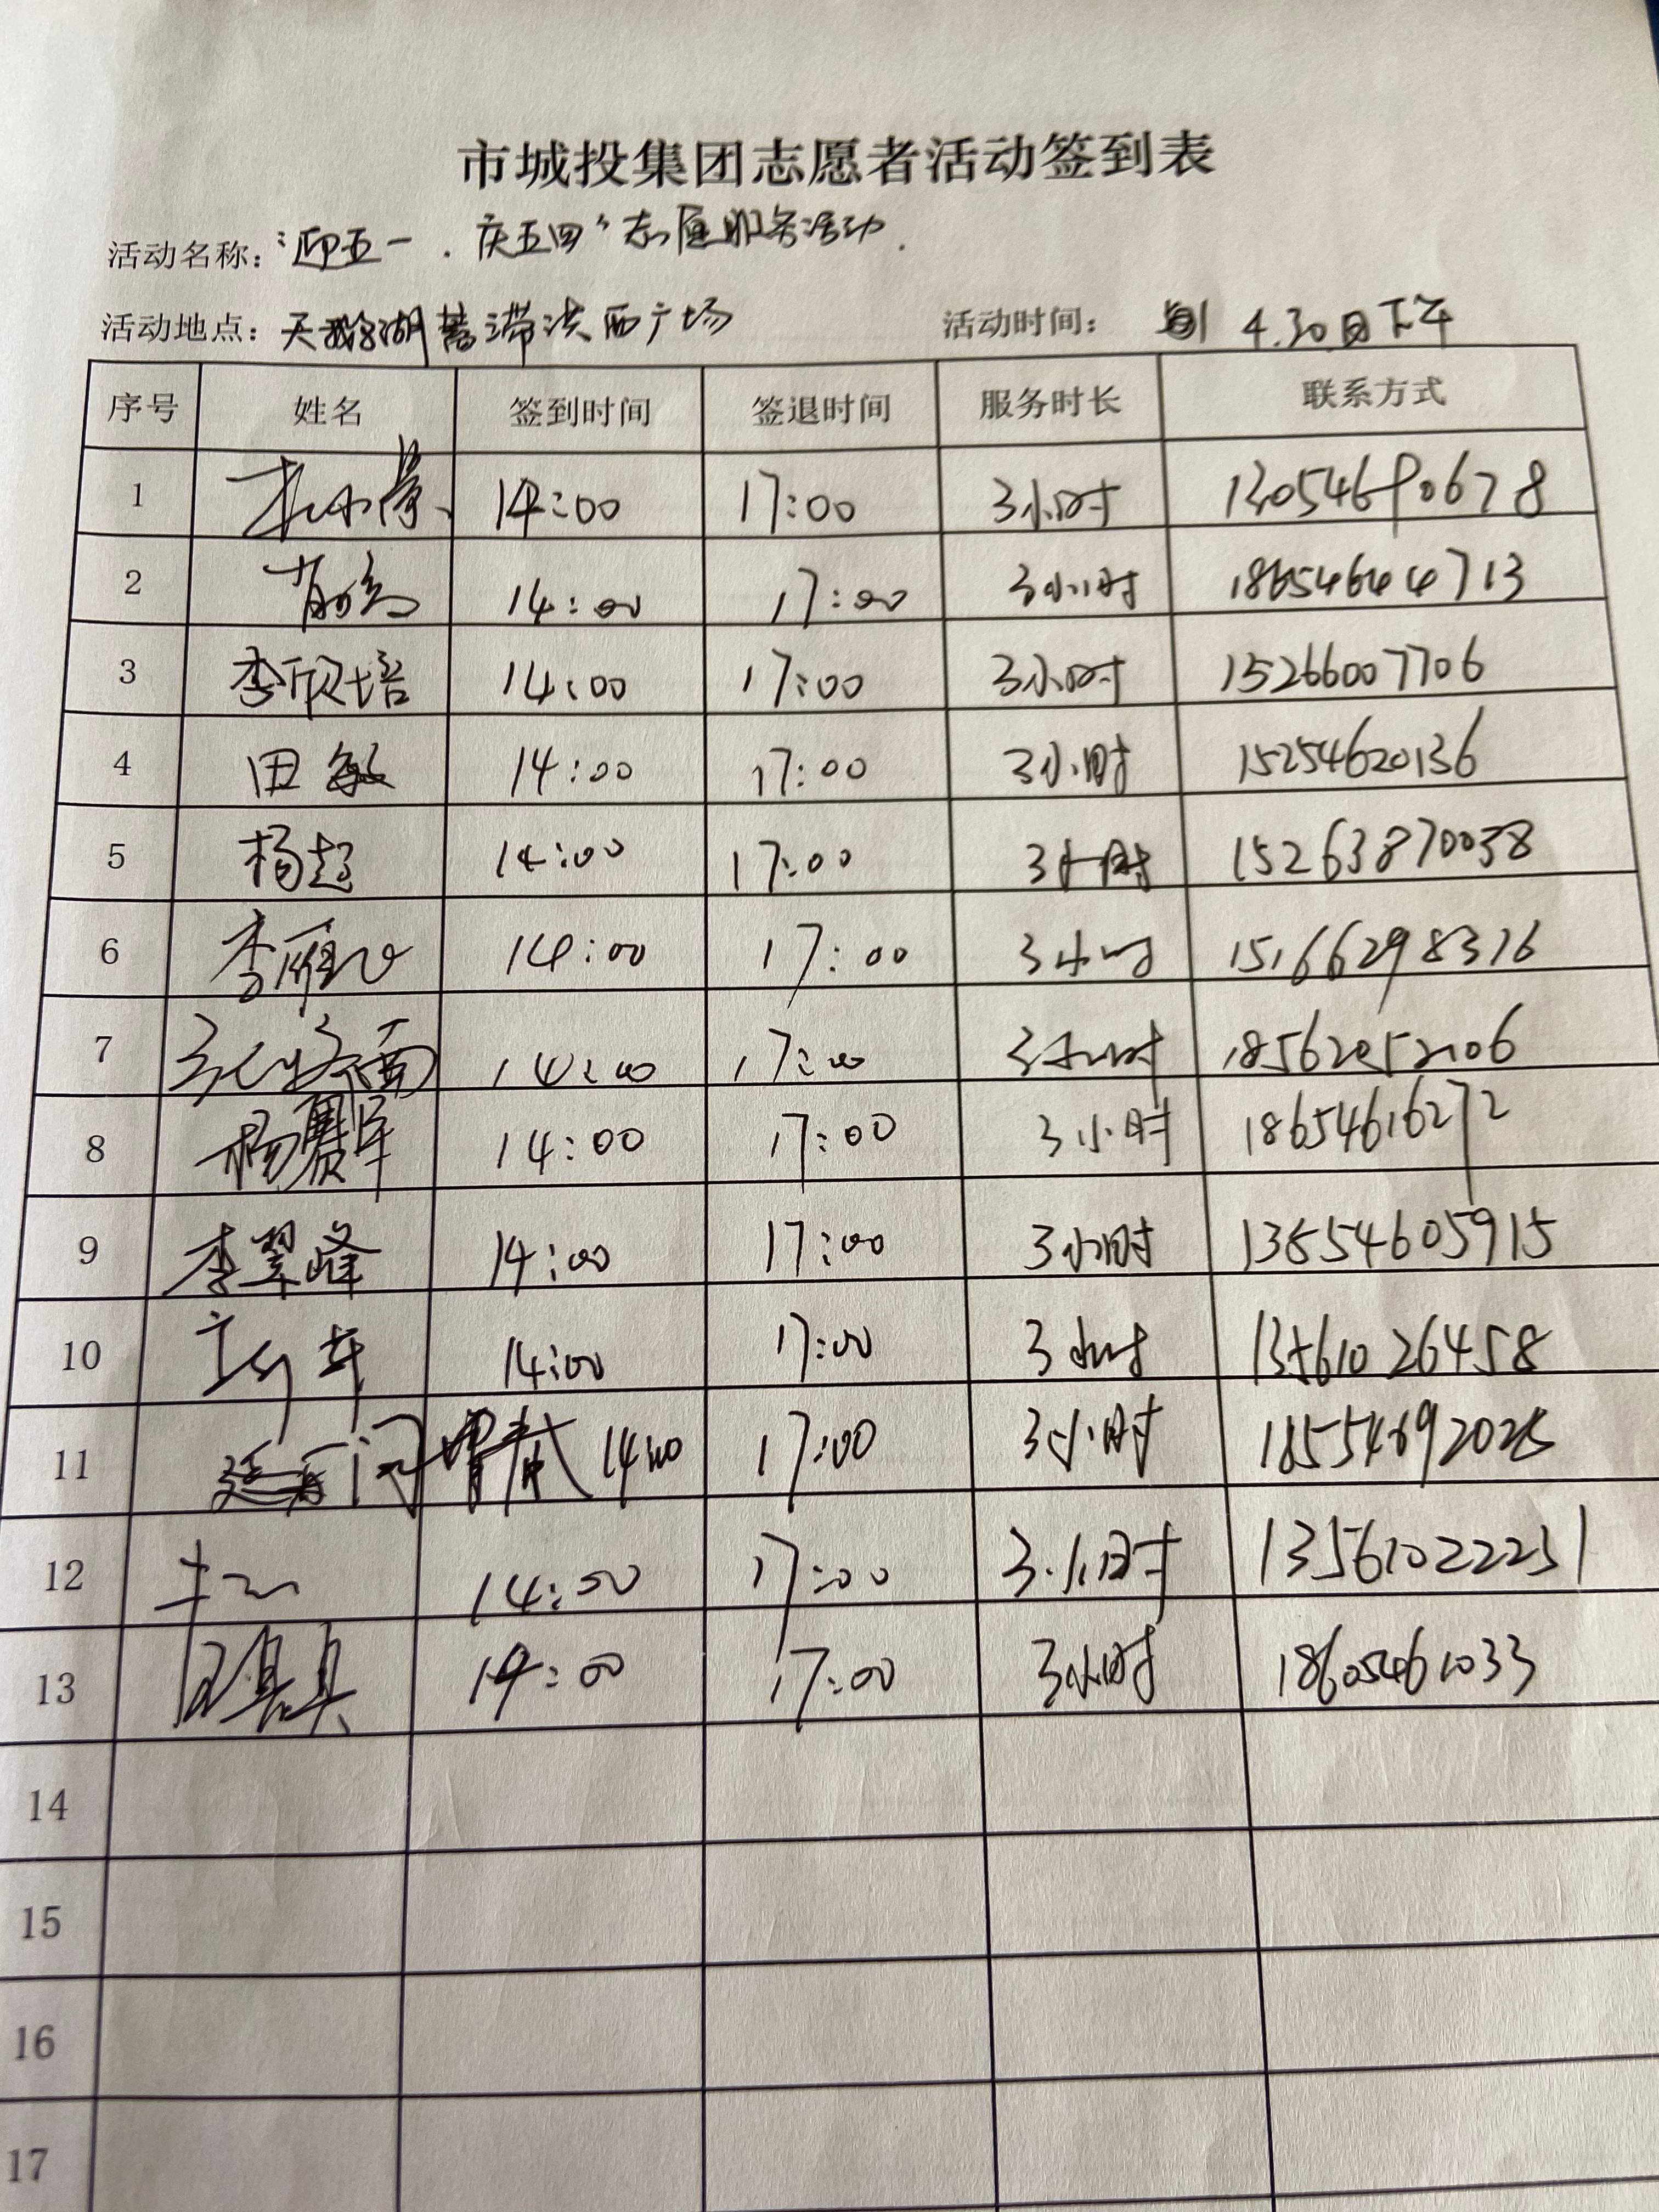 市城投集团志愿者活动签到表
活动名称："迎五一.庆五四"志愿服务活动.
活动地点：天鹅湖蓄滞洪西广场 活动时间： 4.30日下午
序号 姓名 签到时间 签退时间 服务时长 联系方式
1 14:00 17:00 3小时 13054690678
2 14:00 17:00 3小时 18654644713
3 李欣培 14:00 17:00 3小时 15266007706
4 田敏 14:00 17:00 3小时 15254620136
5 杨超 14:00 17:00 3小时 15263870038
6 14:00 17:00 3小时 15166298376
7 14:00 17:00 3小时 18562052106
8 14:00 17:00 3小时 18654616272
9 李翠峰 14:00 17:00 3小时 13654605915
10 14:00 17:00 3小时 13561026458
11 14:00 17:00 3小时
12 14:00 17:00 3小时 13561022231
13 14:00 17:00 3小时 18605461033
14
15
16
17